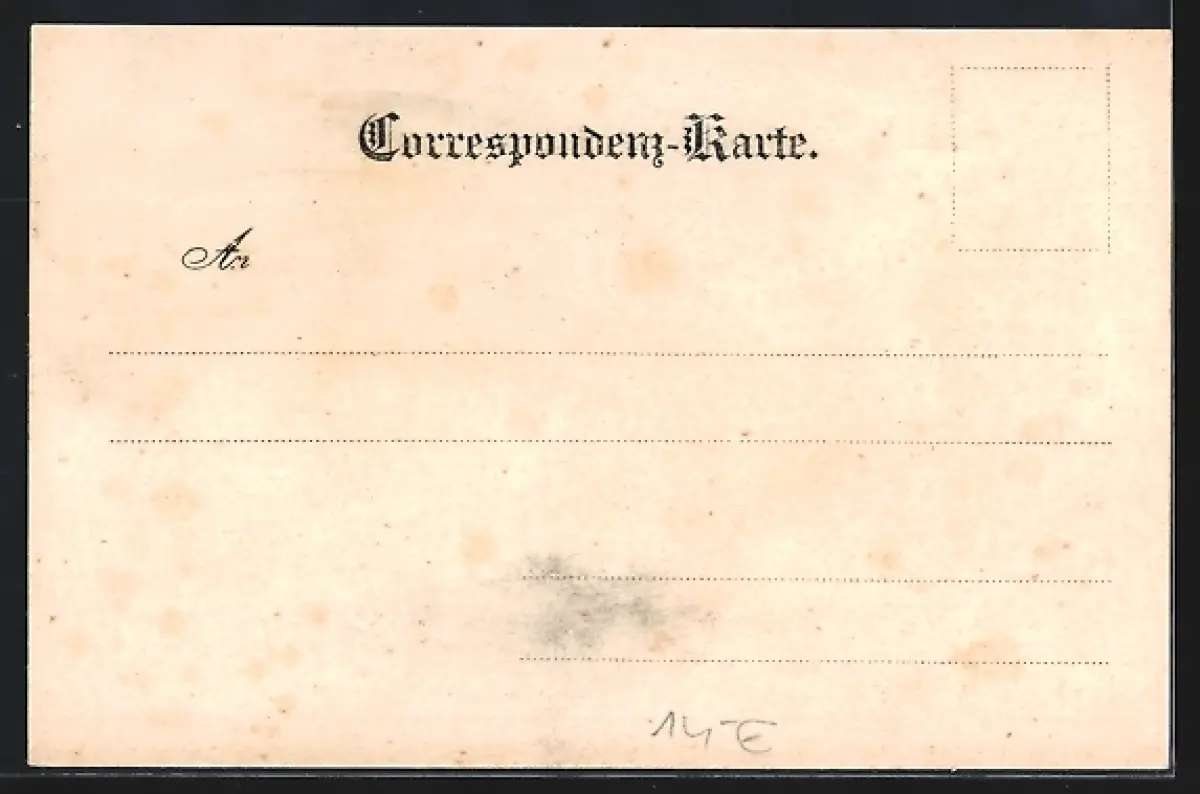 Correspondenz-Karte.
An
14,- €